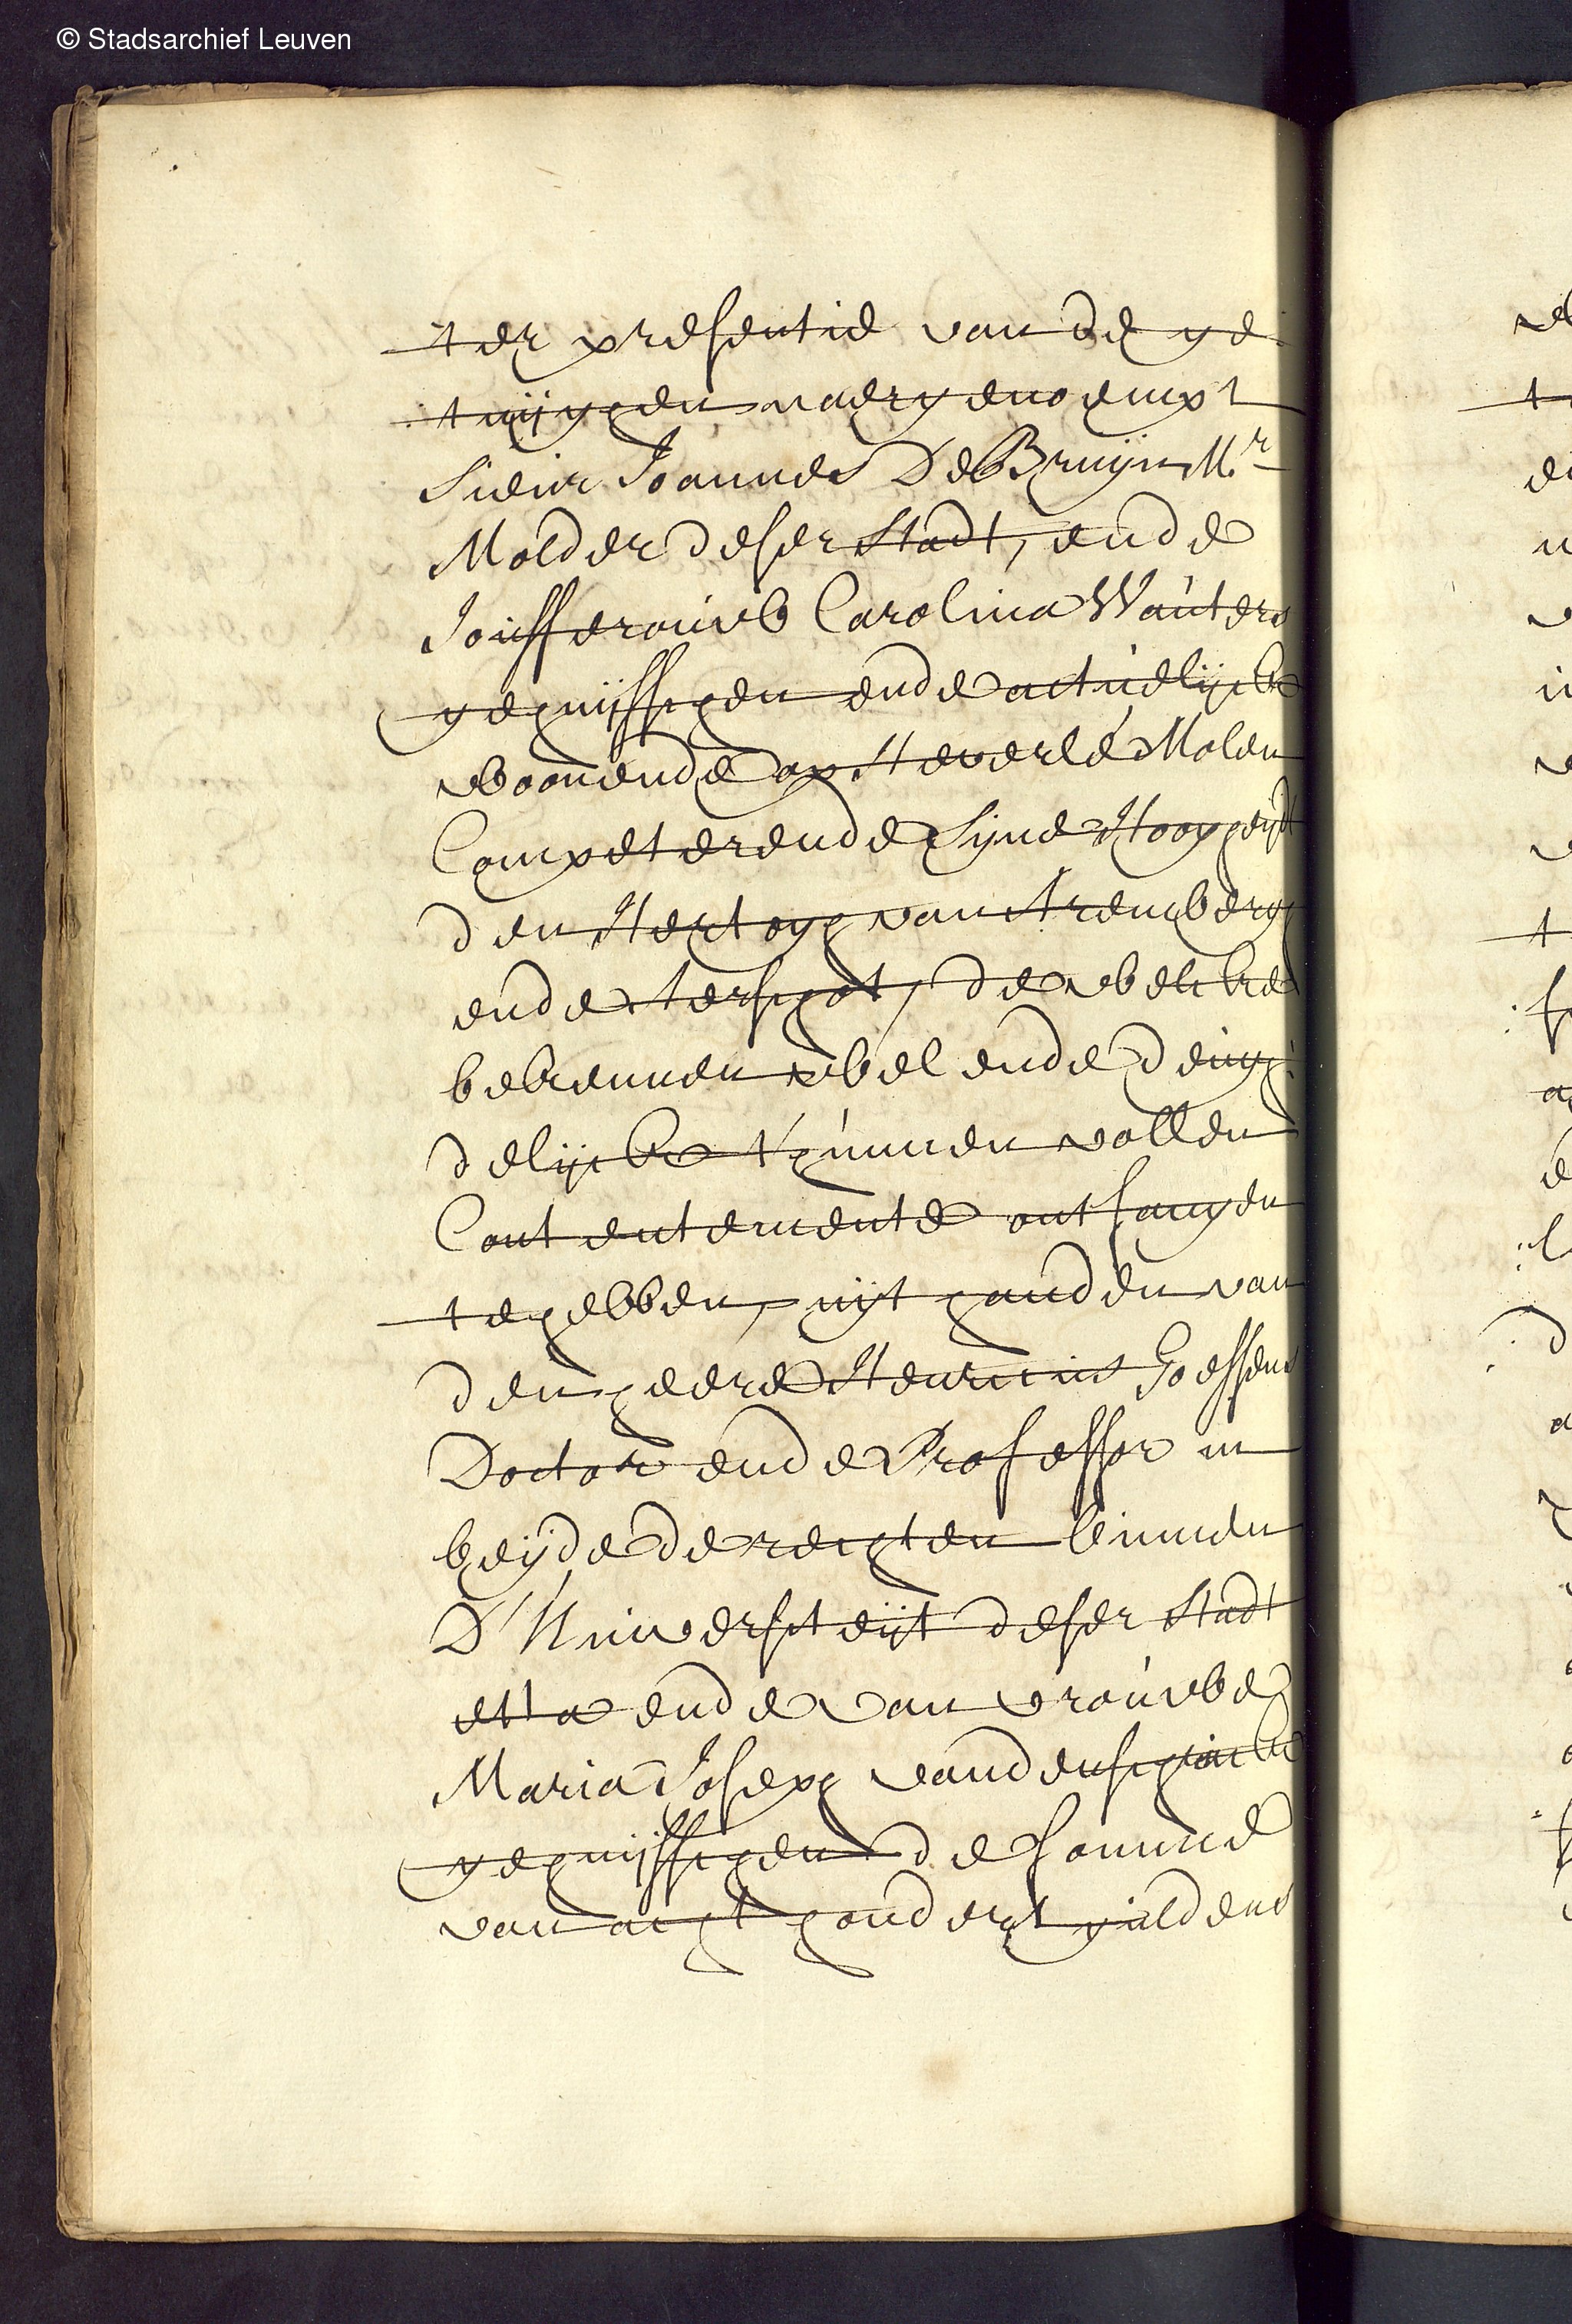 © Stadsarchief Leuven
ter presentie van de ge
tuijgen naergenoempt
Sieur Joannes De Bruijn Mr
Molder deser Stadt, ende
Jouffrouwe Carolina Wauters
gehuijsschen ende actuelijck
woonende op Heverle Molen
Competerende Sijne Hoogheijt
den Hertogh van Aremberg
ende Aerschot, de welcke
bekennen wel ende deugh
delijck t'hunnen vollen
Contentemente ontfangen
te hebben, uijt handen van
den heere Henricus Goessens
Doctor ende Professor in
beijde de rechten binnen
D'Universiteijt deser Stadt
etta ende van vrouwe
Maria Joseph vanden
gehuijsschen de somme
van acht hondert guldens